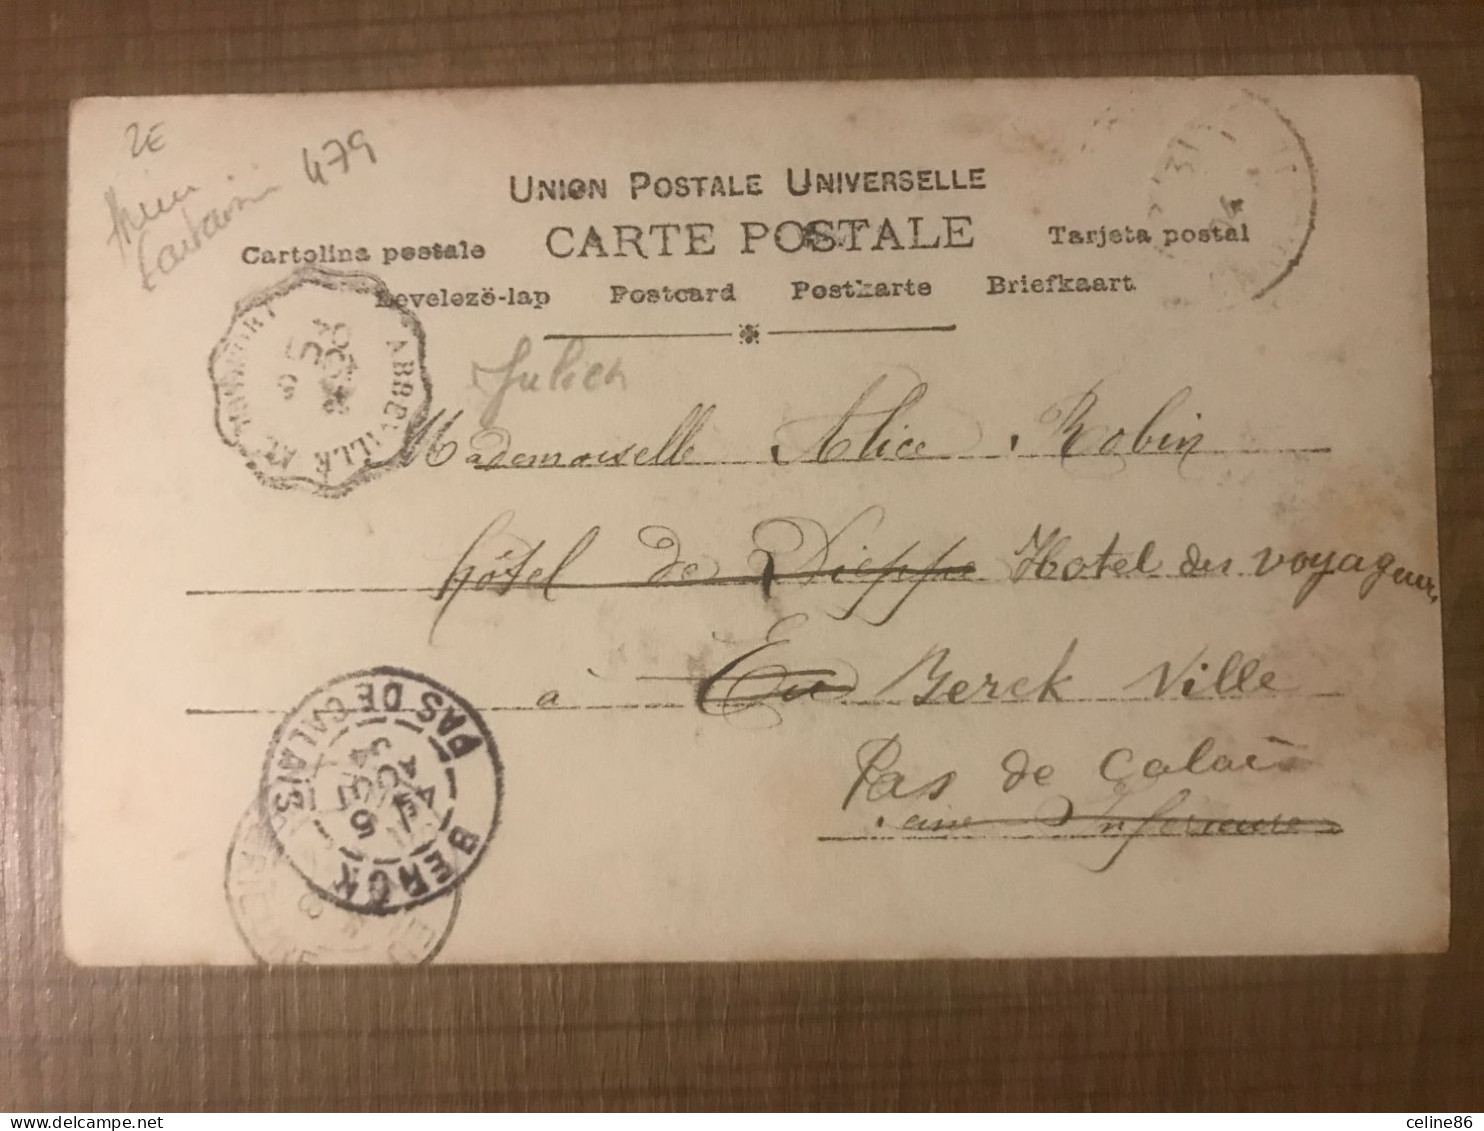 2E
479
UNION POSTALE UNIVERSELLE
CARTE POSTALE
Cartolina postale
Tarjeta postal
Levelezö-lap Postcard Postkarte Briefkaart
ABBEVILLE
Julien
Mademoiselle Alice Robin
hôtel de Dieppe Hotel des voyageurs
à Eu Berck Ville
Pas de Calais
Seine Inférieure
BERCK
PAS DE CALAIS
5
AOUT
04
celine86